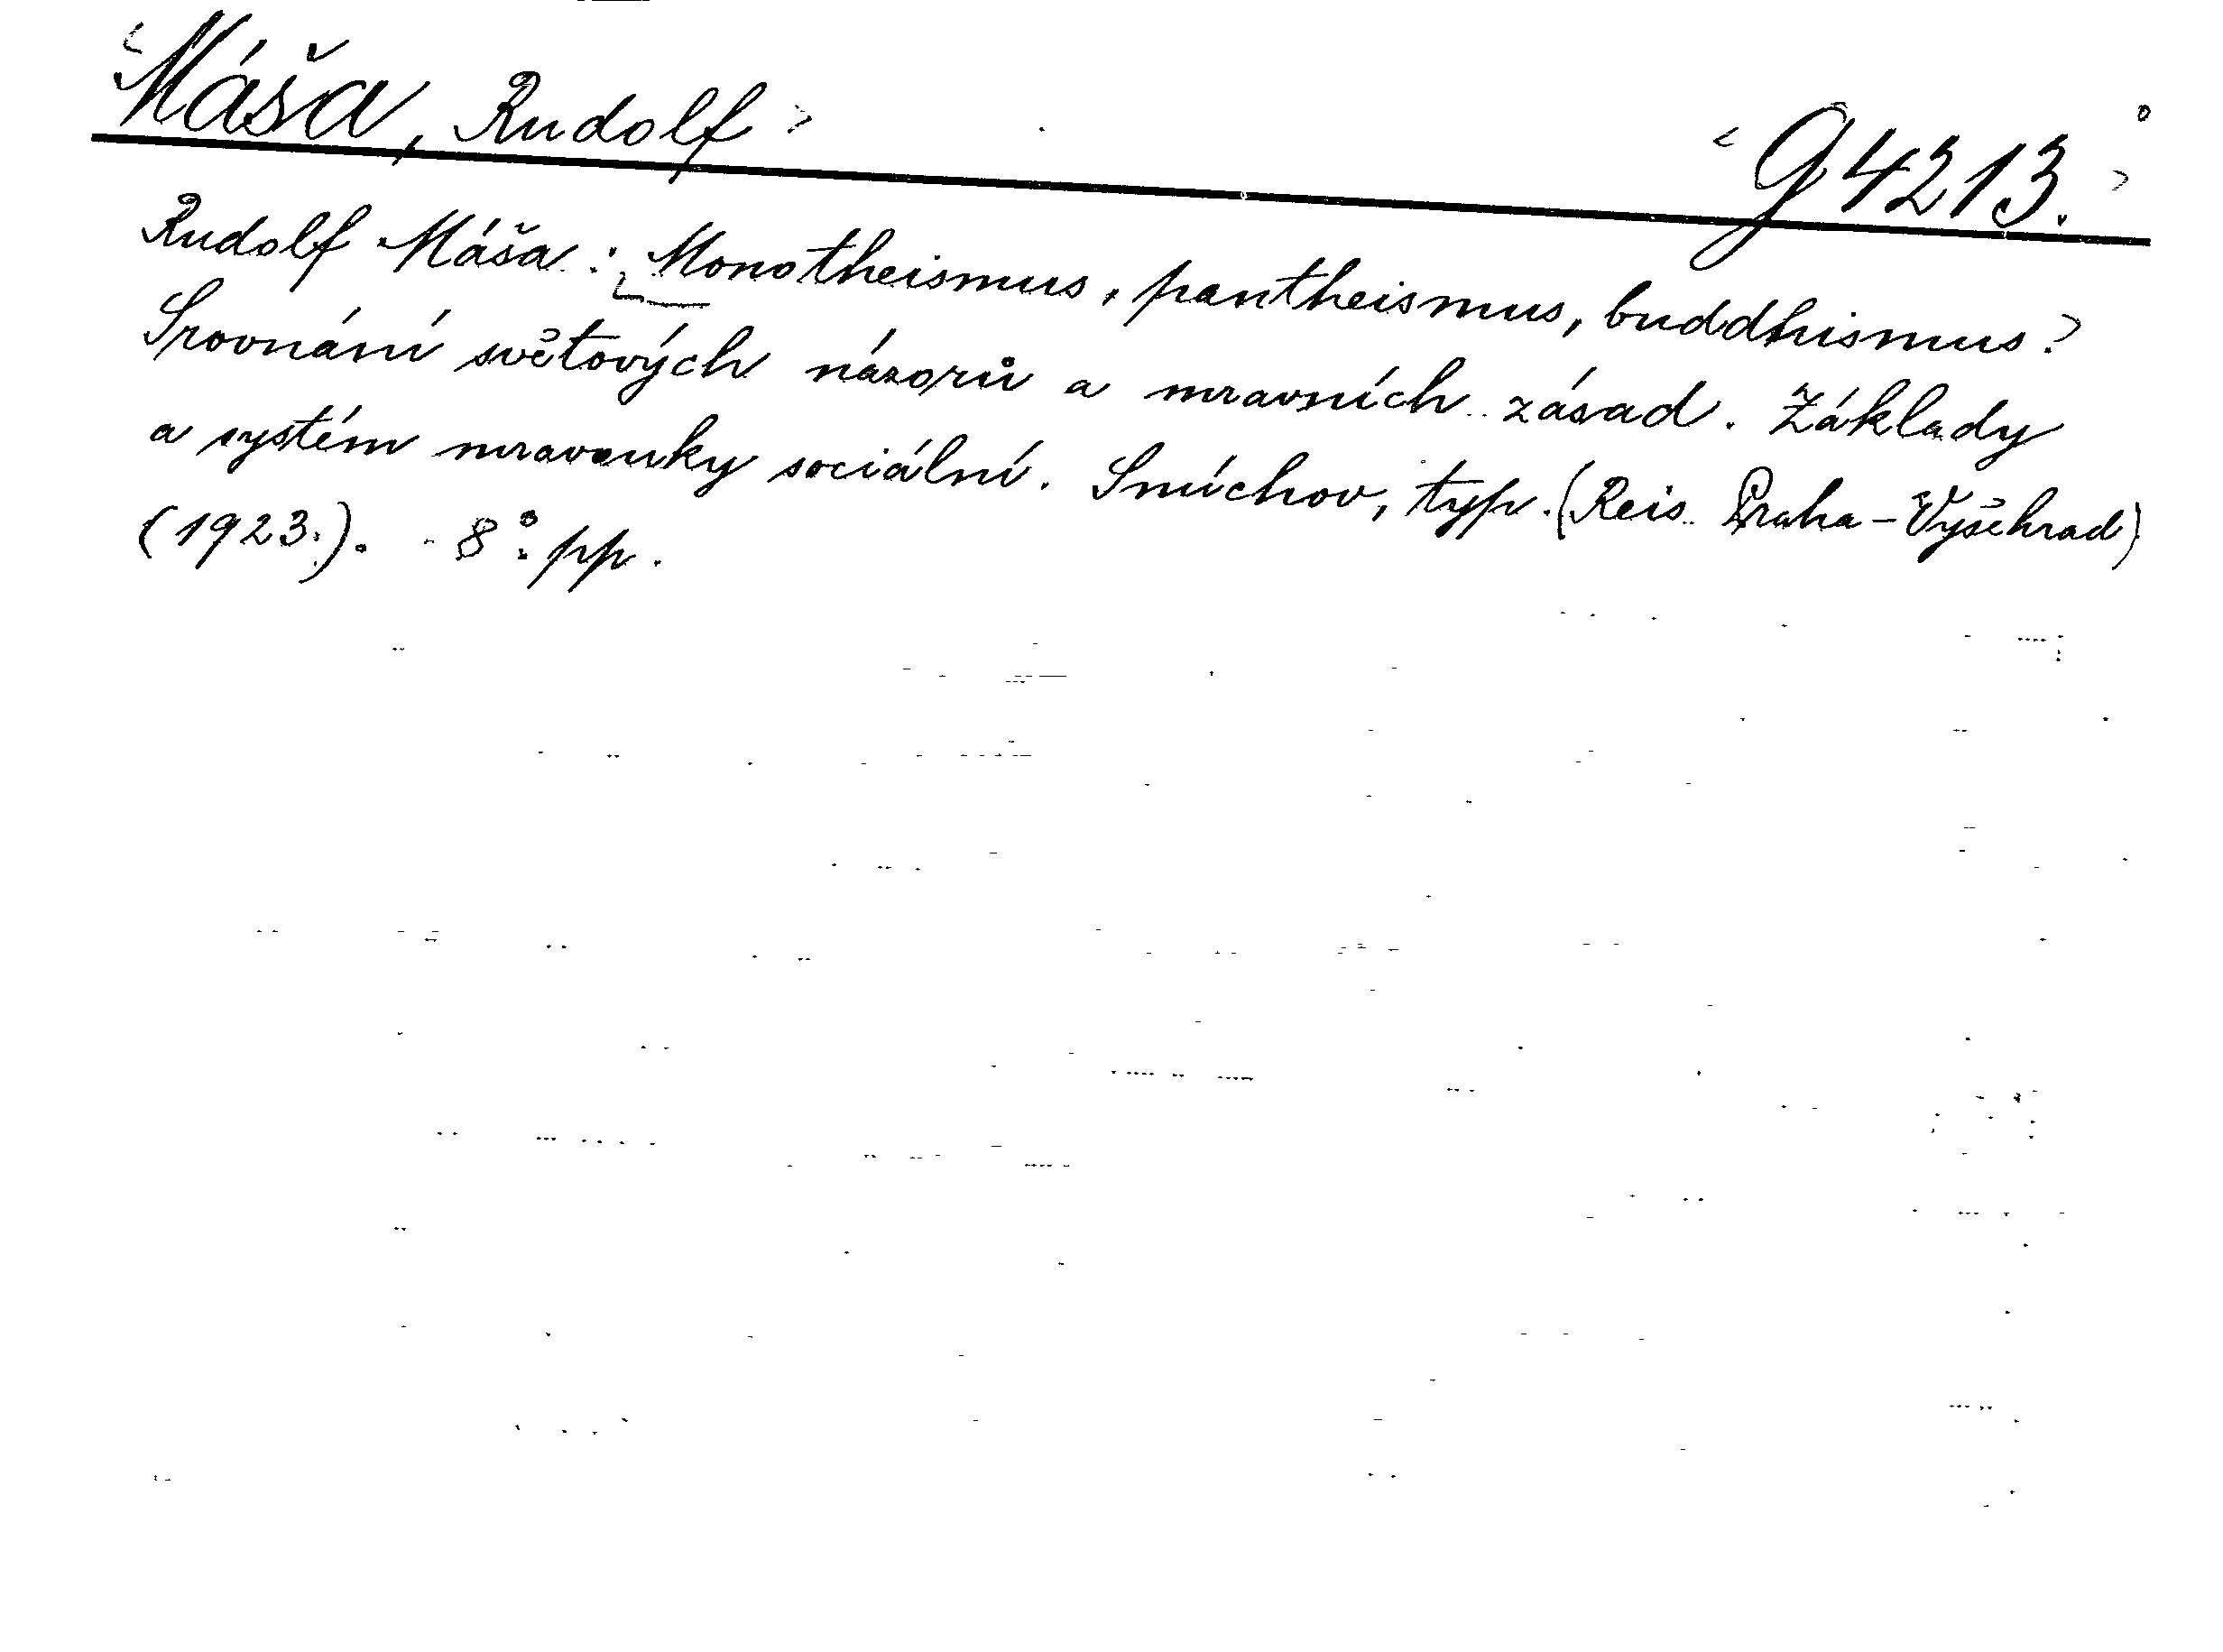 Máša, Rudolf
G 4213.
Rudolf Máša: Monotheismus, pantheismus, buddhismus?
Srovnání světových názorů a mravních zásad. Základy
a systém mravouky sociální. Smíchov, typ. (Reis. Praha-Vyšehrad)
(1923.). - 8°. pp.